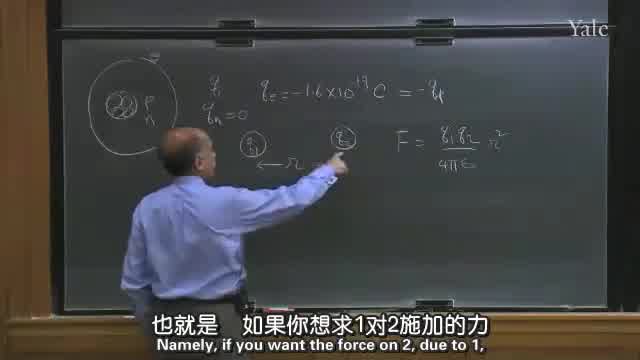 Yale
q    qₑ = -1.6 × 10⁻¹⁹ C = -qₚ
P
n
qₙ = 0
q₁
q₂
F = q₁q₂ r²
4πε
← r
也就是 如果你想求1对2施加的力
Namely, if you want the force on 2, due to 1,